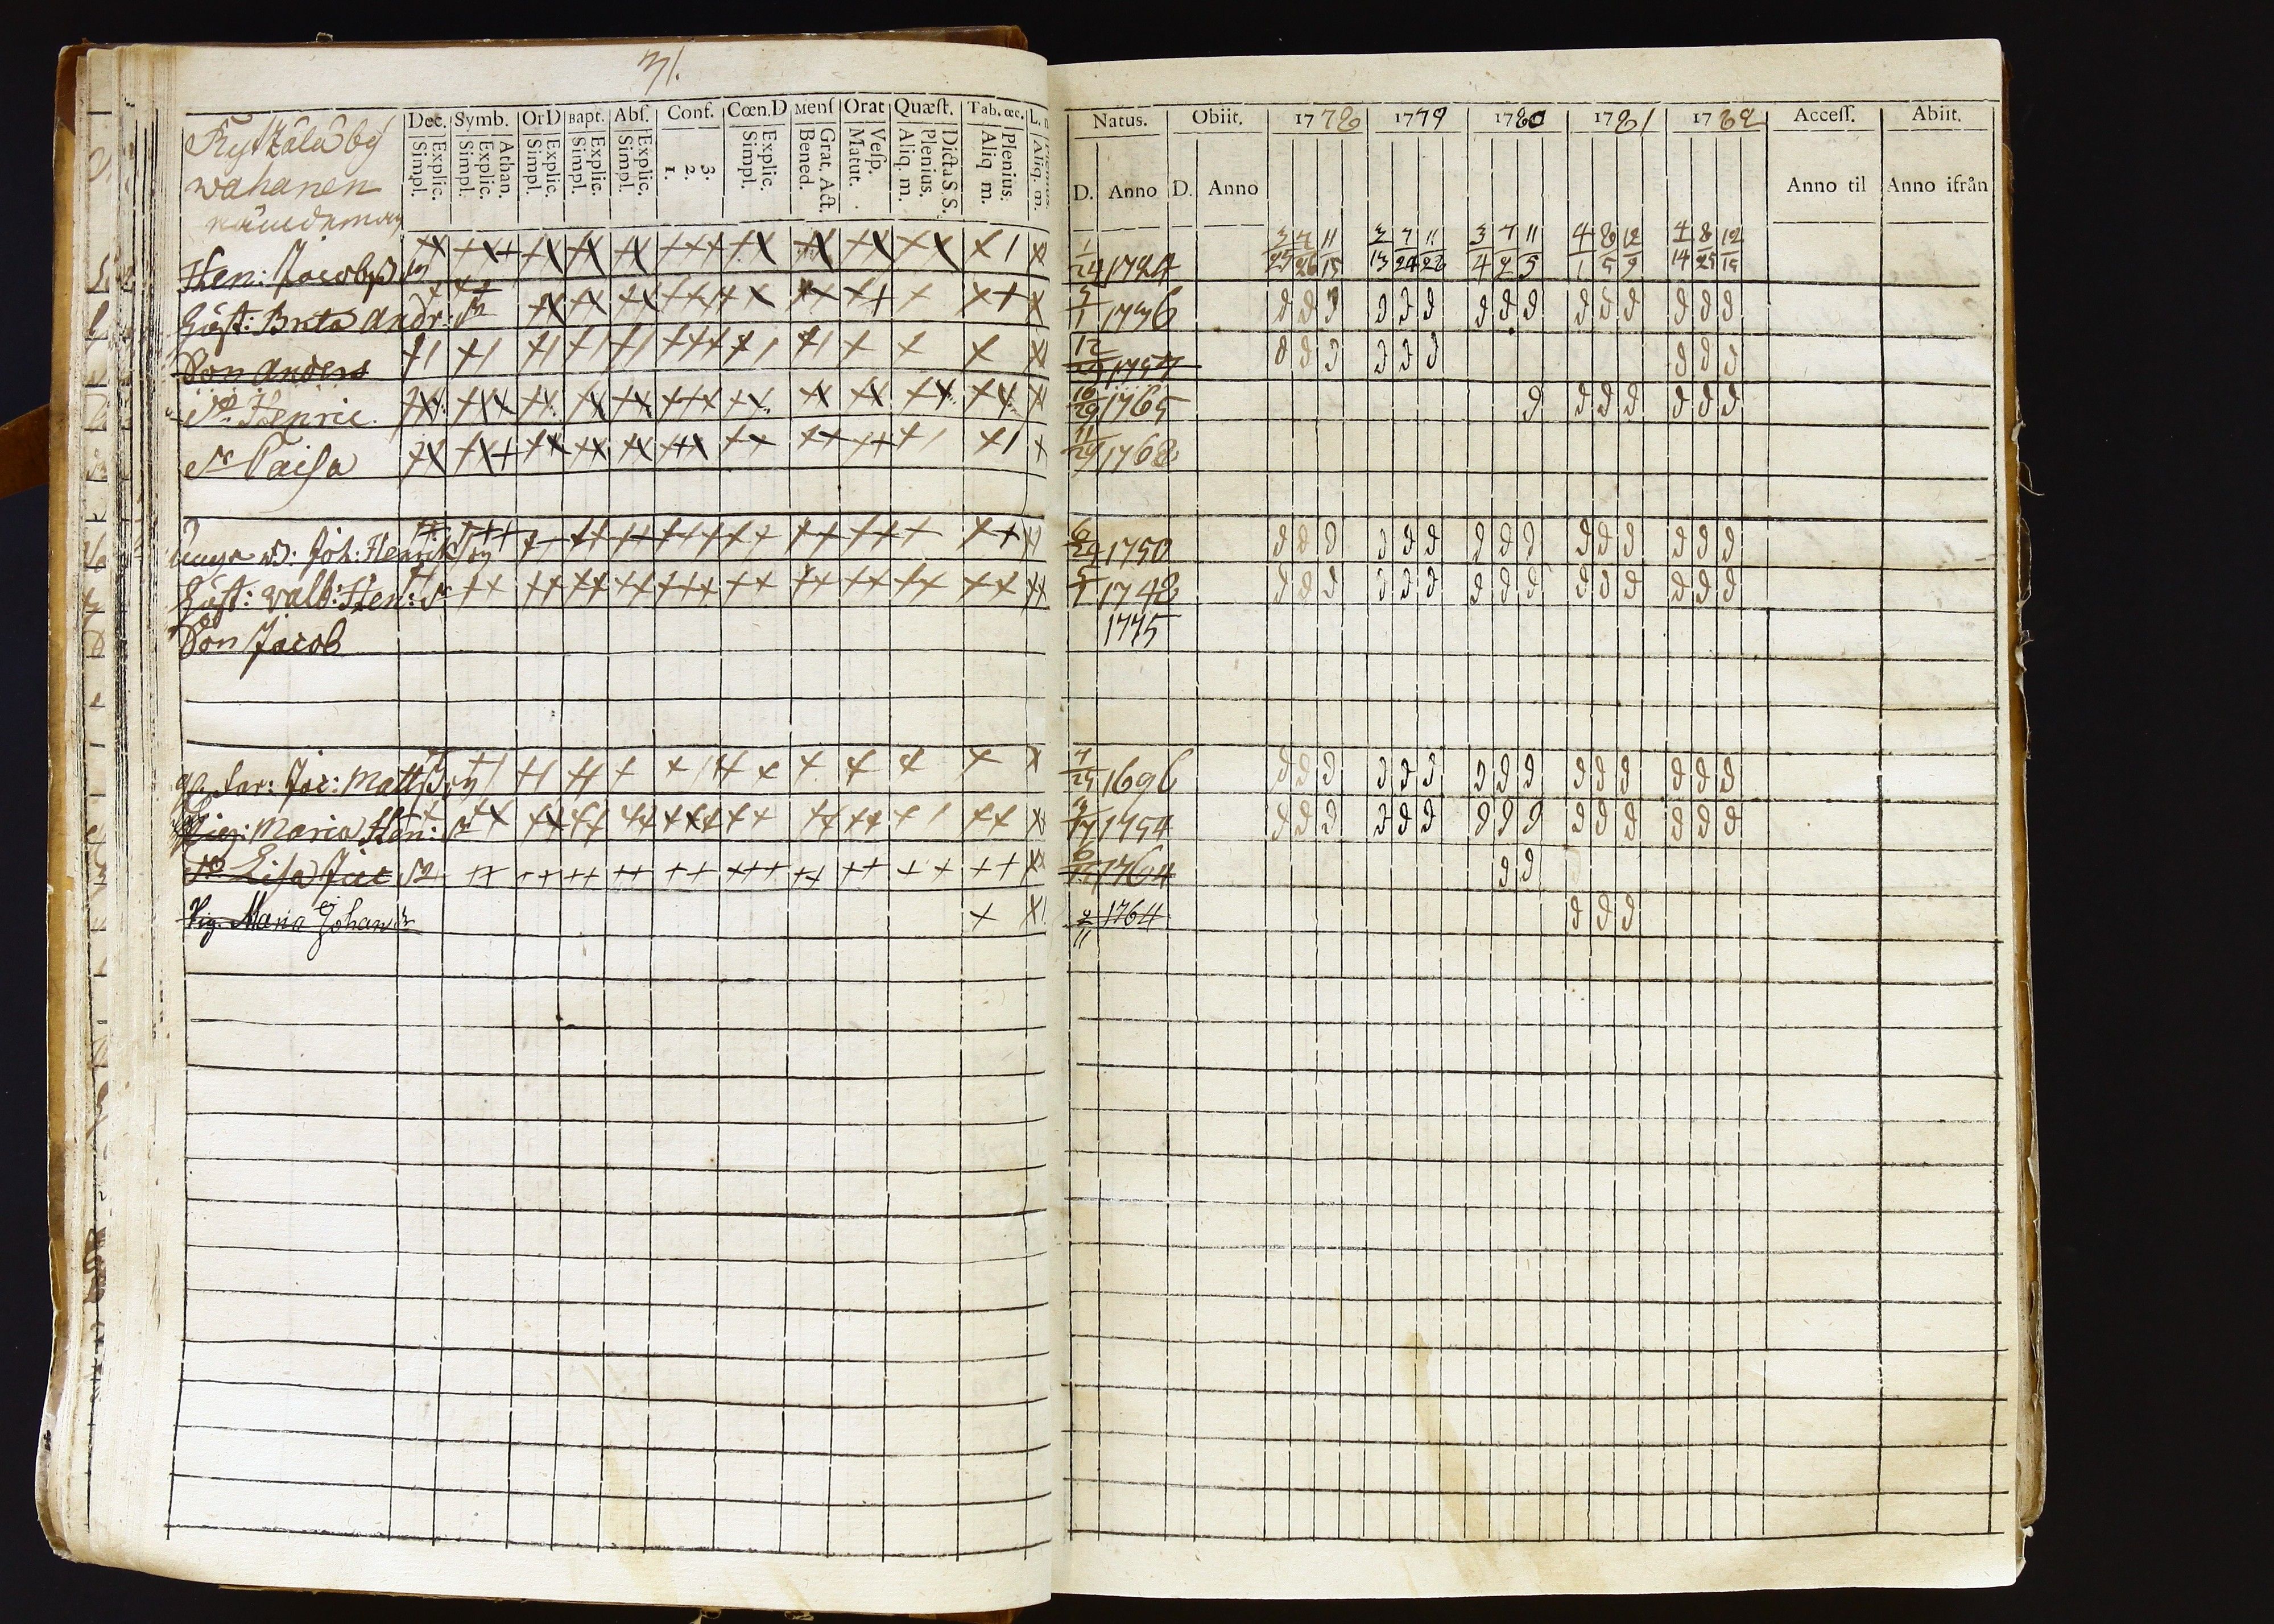 31.
Dec. Symb. OrD Bapt. Abſ. Conf. Cœn.D Menſ Orat Quæſt. Tab.œc. L.
Explic. Simpl. Athan. Explic. Simpl. Explic. Simpl. Explic. Simpl. Explic. Simpl. 3. 2. 1. Explic. Simpl. Grat. Act. Bened. Veſp. Matut. Dicta S. S. Plenius. Aliq. m. Plenius. Aliq m. Aliq. m.
Natus. Obiit. 1778 1779 1780 1781 1782 Acceſſ. Abiit.
D. Anno D. Anno Anno til Anno ifrån
by
wahanen
3/25 7/26 11/15 3/13 7/24 11/28 3/4 7/2 11/5 4/1 8/5 12/9 4/14 8/25 12/15
Hen: Jacobſson 1/24 1724
Huſt: Brita Andr: dr 5/1 1736
Son Anders 12/23 1757
do Henric 10/29 1765
dr Caisa 11/29 1768
Joh: Henrikſson 6/24 1750
Huſt: Valb: Hen: dr 5/1 1748
Son Jacob 1775
far: Jac: Mattſson 7/25 1696
Pig: Maria Hen: dr 3/17 1754
do Lisa 1764
Pig. Maria Johan dr 2/11 1764